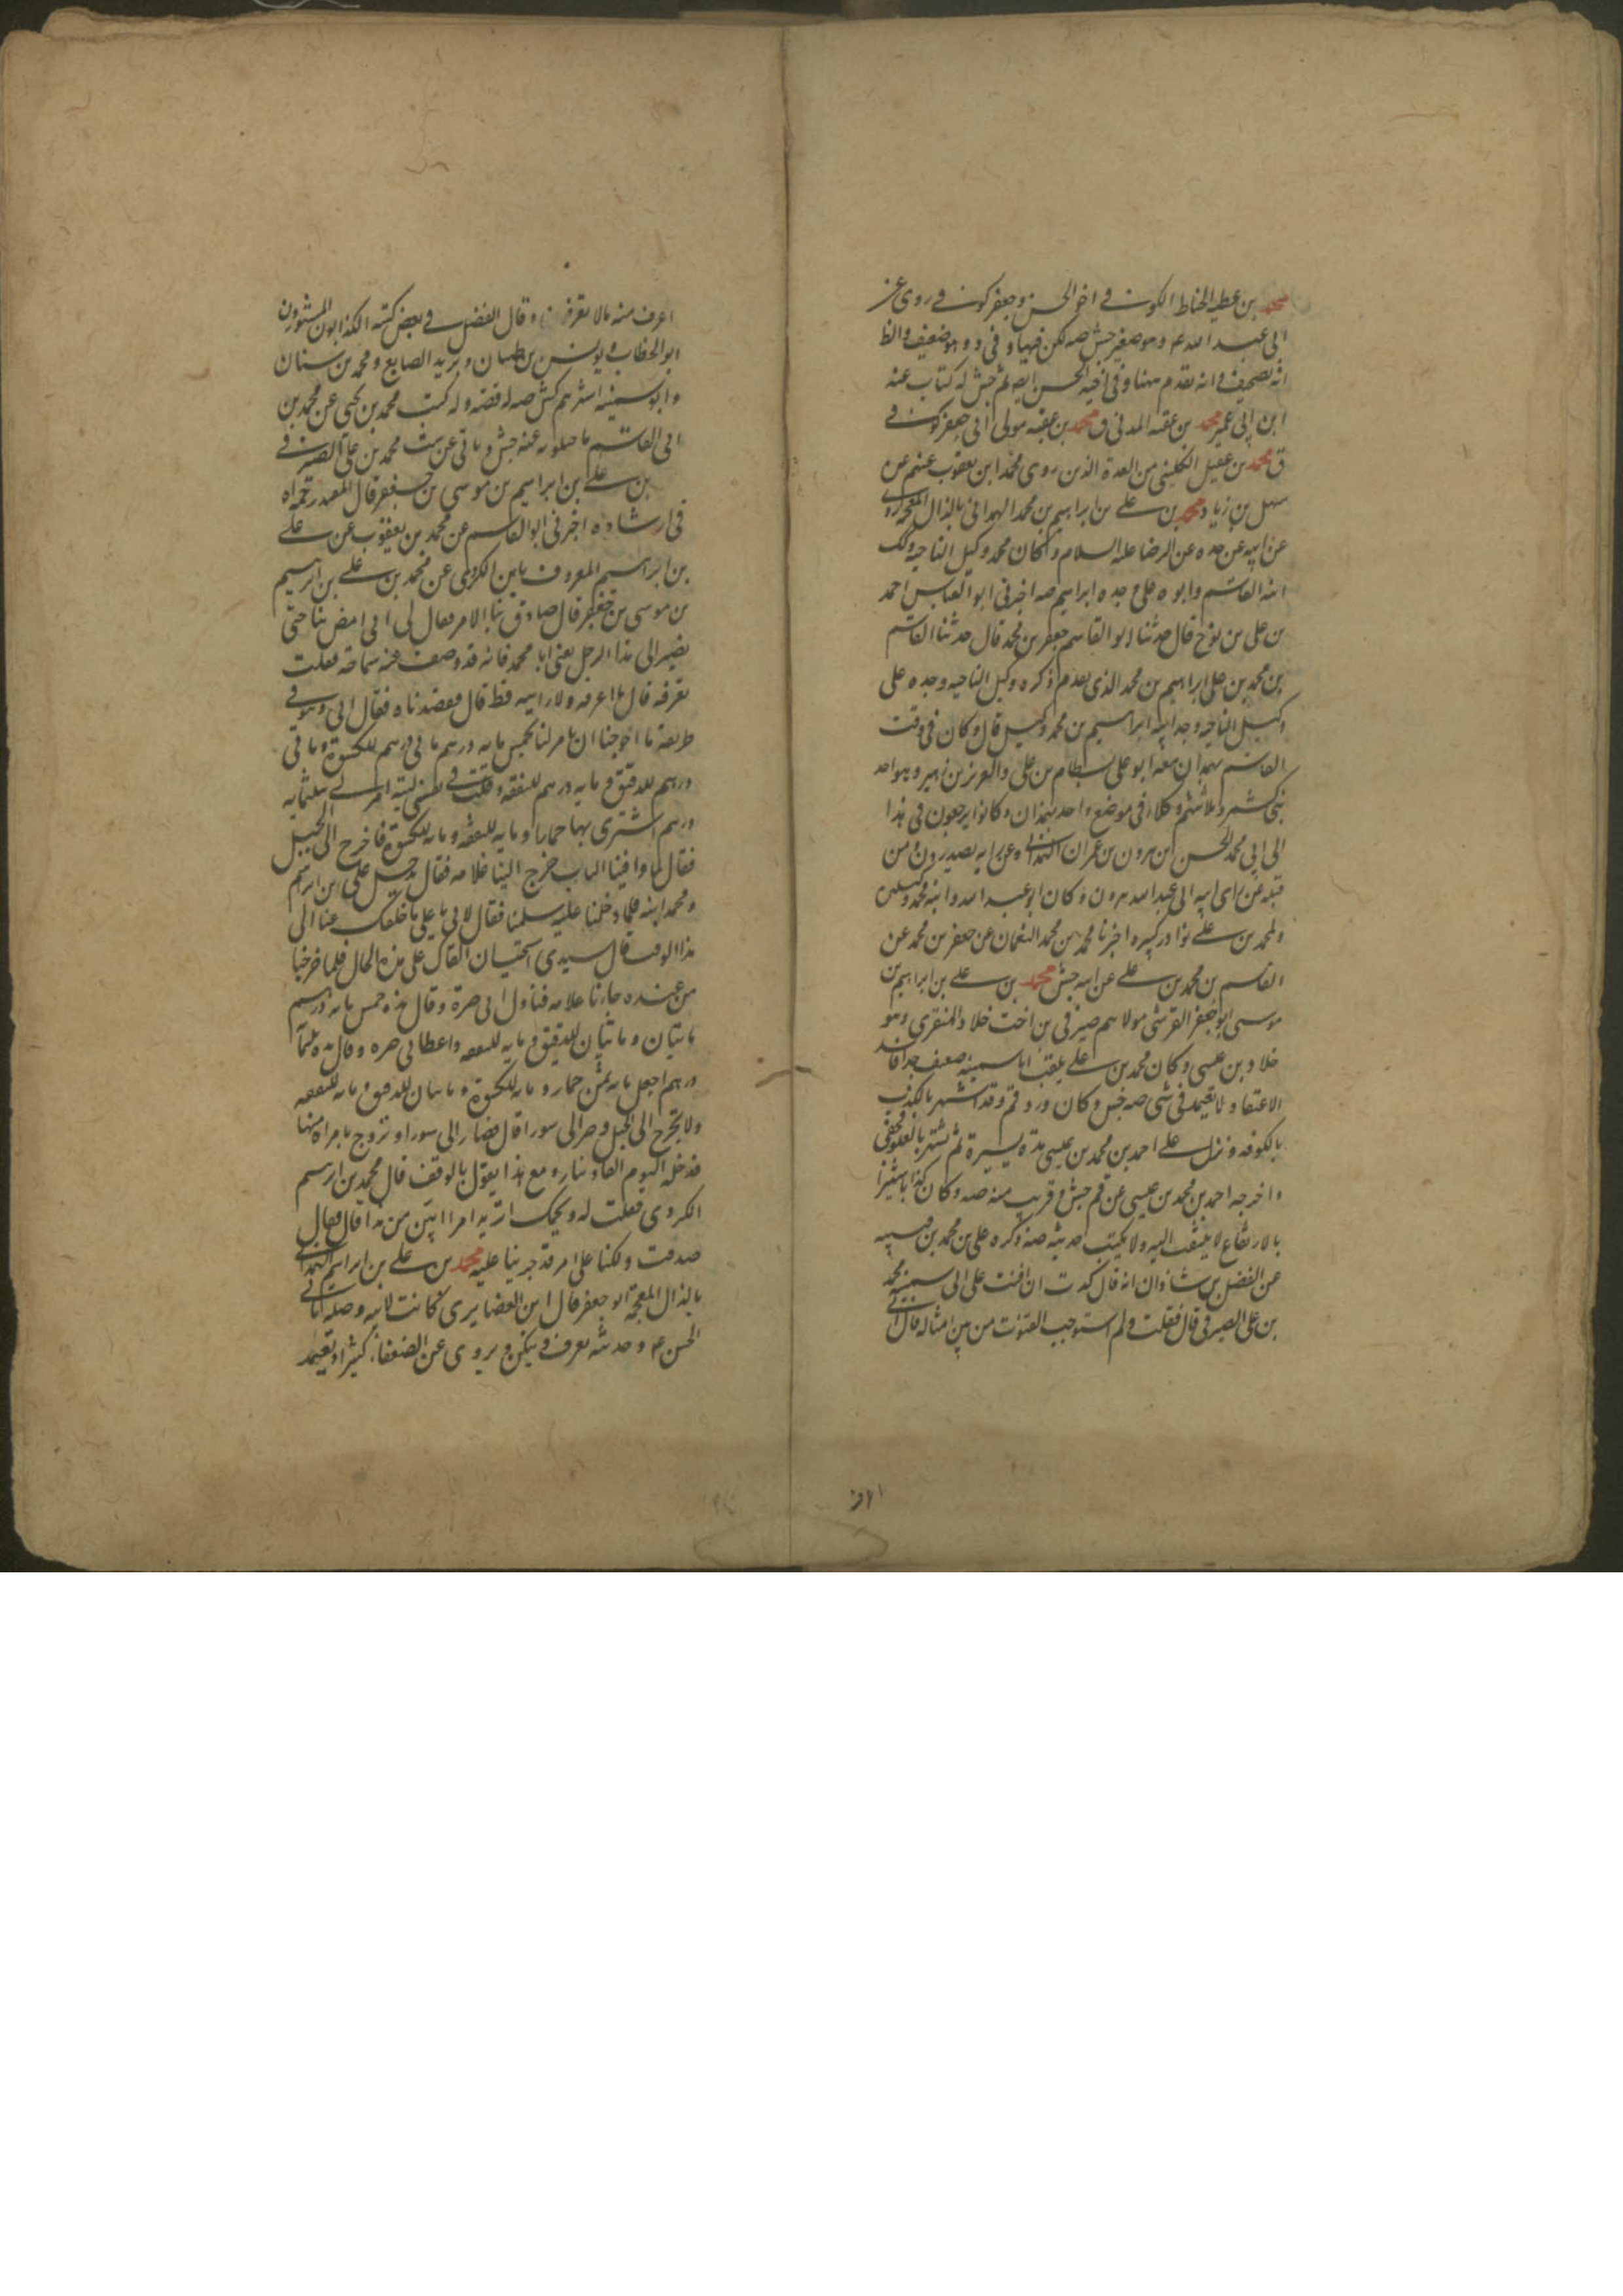 محمد بن عطيه الحناط الكوفى اخو الحسن وجعفر كوفى روى عن
ابى عبد الله ع وهو صغير جش صه لكن فيها وفى د وهو ضعيف والظ
انه تصحيف وانه تقدم منا وفى اخيه الحسن ايضا ثم جش له كتاب عنه
ابن ابى عمير محمد بن عقبه المدنى ق محمد بن عقبه مولى ابى جعفر كوفى
ق محمد بن عقيل الكلينى من العدة الذين روى محمد ابن يعقوب عنهم عن
سهل بن زياد محمد بن على بن ابراهيم بن محمد الهمدانى بالذال المعجمه روى
عن ابيه عن جده عن الرضا عليه السلام وكان محمد وكيل الناحيه وكك
ابنه القاسم وابوه على وجده ابراهيم صه اخبرنى ابو العباس احمد
بن على بن نوح قال حدثنا ابو القاسم جعفر بن محمد قال حدثنا القاسم
بن محمد بن على ابراهيم بن محمد الذى تقدم ذكره وكيل الناحيه وجده على
وكيل الناحيه وجد ابيه ابراهيم بن محمد وكيل قال وكان فى وقت
القاسم بهمدان معه ابو على بسطام بن على والعزيز بن زهير وهو احد
بنى كشمرد ثلاثتهم وكلاء فى موضع واحد بهمدان وكانوا يرجعون فى هذا
الى ابى محمد الحسن بن هرون بن عمران الهمدانى وعن رايه يصدرون ومن
قبله عن راى ابيه الى عبد الله هرون وكان ابو عبد الله وابنه محمد وكيلين
ولمحمد بن على نوادر كبيره اخبرنا محمد بن محمد النعمان عن جعفر بن محمد عن
القاسم بن محمد بن على عن ابيه جش محمد بن على بن ابراهيم بن
موسى ابو جعفر القرشى مولاهم صيرفى بن اخت خلاد المنقرى وهو
خلاد بن عيسى وكان محمد بن على يلقب ابا سمينه ضعيف جدا فاسد
الاعتقاد لا يعتمد فى شى صه جش وكان ورد قم وقد اشتهر بالكذب
بالكوفه ونزل على احمد بن محمد بن عيسى مدة يسيرة ثم تشهر بالغلو فجفى
واخرجه احمد بن محمد بن عيسى عن قم جش وقريب منه صه وكان كذابا شهيرا
بالارتفاع لا يلتفت اليه ولا يكتب حديثه صه ذكره على بن محمد بن قتيبه
عن الفضل بن شاذان انه قال كدت ان اقنت على ابى سمينه محمد
بن على الصيرفى قال فقلت ولم استوجب القنوت من بين امثاله قال انى
١٦٢
اعرف منه ما لا تعرفه وقال الفضل فى بعض كتبه الكذابون المشهورون
ابو الخطاب ويونس بن ظبيان ويزيد الصايغ ومحمد بن سنان
وابو سمينه اشهرهم كش صه له قصه وله كتب محمد بن يحيى عن محمد بن
ابى القاسم ماجيلويه عنه جش وياتى عن ست محمد بن على الصيرفى
بن على بن ابراهيم بن موسى بن جعفر قال المفيد رحمه الله
فى ارشاده اخبرنى ابو القاسم عن محمد بن يعقوب عن على
بن ابراهيم المعروف بابن الكردى عن محمد بن على بن ابراهيم
بن موسى بن جعفر قال ضاق بنا الامر فقال لى ابى امض بنا حتى
نصير الى هذا الرجل يعنى ابا محمد فانه قد وصف عنه سماحة فقلت
تعرفه قال ما اعرفه ولا رايته قط قال فقصدناه فقال ابى وهو فى
طريقه ما احوجنا ان يامر لنا بخمس مايه درهم مائتى درهم للكسوة ومائتى
درهم للدقيق ومايه درهم للنفقه وقلت فى نفسى ليته امر لى بثلثمايه
درهم اشترى بها حمارا ومايه للنفقه ومايه للكسوة فاخرج الى الجبل
فقال لما وافينا الباب خرج الينا غلامه فقال يدخل على بن ابراهيم
ومحمد ابنه فلما دخلنا عليه سلمنا فقال لابى يا على ما خلفك عنا الى
هذا الوقت قال سيدى استحييت ان القاك على هذه الحال فلما خرجنا
من عنده جاءنا غلامه فناول ابى صرة وقال هذه خمس مايه درهم
مائتان ومائتان للدقيق ومايه للنفقه واعطانى صره وقال هذه ثلثمائه
درهم اجعل مايه ثمن حمار ومايه للكسوة ومايتان للدقيق ومايه للنفقه
ولا تخرج الى الجبل وصر الى سورا قال فصار الى سورا وتزوج بامراة منها
فدخله اليوم الفا دينار ومع هذا يقول بالوقف قال محمد بن ابراهيم
الكردى فقلت له ويحك اتريد امرا ابين من هذا قال فقال
صدقت ولكنا على امر قد جرينا عليه محمد بن على بن ابراهيم الهمدانى
بالذال المعجمة ابو جعفر قال ابن الغضايرى كانت لابيه وصله بابى
الحسن ع وحديثه يعرف وينكر ويروى عن الضعفاء كثيرا ويعتمد